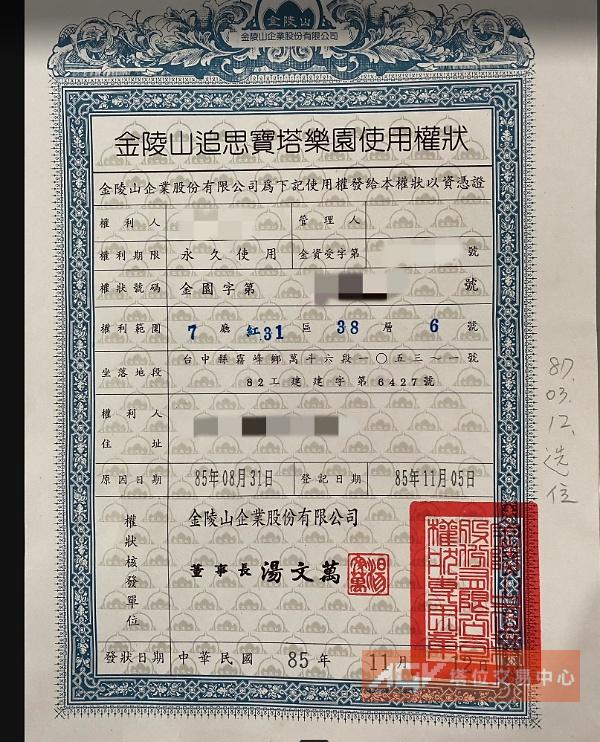 金陵山
金陵山企業股份有限公司
金陵山追思寶塔樂園使用權狀
金陵山企業股份有限公司為下記使用權發給本權狀以資憑證
權利人 管理人
權利期限 永久使用 金資受字第 號
權狀號碼 金國字第 號
權利範圍 7 廳 紅31 區 38 層 6 號
坐落地段 台中縣霧峰鄉萬斗六段一〇五三一一號
82工建建字第6427號
權利人
住址
原因日期 85年08月31日 登記日期 85年11月05日
權狀核發單位
金陵山企業股份有限公司
董事長 湯文萬
發狀日期 中華民國 85 年 11 月
塔位交易中心
87.
03.
12.
选
位